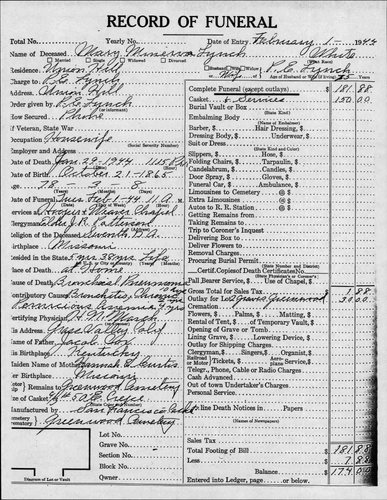 RECORD OF FUNERAL
Total No. Yearly No. Date of Entry February 1- 1944
Name of Deceased Mary Minerva Lynch White
Married Single Widowed Divorced (What Race)
Residence Union Hill Husband Wife Widow of P.E. Lynch
Charge to P.E. Lynch Age of Husband or Wife (if living) Years
Address Union Hill
Order given by P.E. Lynch
How Secured Phone
If Veteran, State War
Occupation Housewife
Employer and Address
Date of Death Jan. 29-1944 1115 P.M.
Date of Birth October 21-1865
Age 78 - 3 - 8
Date of Funeral Tues Feb 1-44 11 A.M.
Services at Hooper & Weaver Chapel
Clergyman Elder J.R. Patterson
Religion of the Deceased Seventh D.A.
Birthplace Missouri
Resided in the State
Place of Death at Home
Cause of Death Bronchial Pneumonia
Contributory Causes Bronchitis, Chronic
Certifying Physician H.N. March
His Address Grass Valley Calif
Name of Father Jacob Cox
His Birthplace Kentucky
Maiden Name of Mother Hannah E. Curtis
Her Birthplace Missouri
Remains to Greenwood Cemetery
Size of Casket
Manufactured by San Francisco Casket
Cemetery Greenwood Cemetery
Lot No.
Grave No.
Section No.
Block No.
Owner
Diagram of Lot or Vault
Complete Funeral (except outlays) $ 181.88
Casket & Services 150.00
Burial Vault or Box
(State Kind)
Embalming Body
(Name of Embalmer)
Barber, Hair Dressing,
Dressing Body, Underwear,
Suit or Dress
(State Kind and Color)
Slippers, Hose,
Folding Chairs, Tarpaulin,
Candelabrum, Candles,
Door Spray, Gloves,
Funeral Car, Ambulance,
Limousines to Cemetery @ $
Extra Limousines @ $
Autos to R. R. Station @ $
Getting Remains from
Taking Remains to
Trip to Coroner's Inquest
Delivering Box to
Deliver Flowers to
Removal Charges
Procuring Burial Permit
(State Number and District)
Certif. Copies of Death Certificates No.
(State Physician's or Coroner's)
Pall Bearer Service, Use of Chapel,
Gross Total for Sales Tax $ 1.88
Outlay for Lot Grave Greenwood 30.00
Cremation
Flowers, Palms, Matting,
Rental of Tent, of Temporary Vault,
Opening of Grave or Tomb
Lining Grave, Lowering Device,
Outlay for Shipping Charges
Clergyman, Singers, Organist,
Railroad or Motor Tickets, Aero Service,
Telegr., Phone, Cable or Radio Charges
Cash Advanced
Out of town Undertaker's Charges
Personal Service,
Line Death Notices in Papers
(Names of Newspapers)
Sales Tax
Total Footing of Bill $ 181.88
Less 7.88
Balance 174.00
Entered into Ledger, page or below.